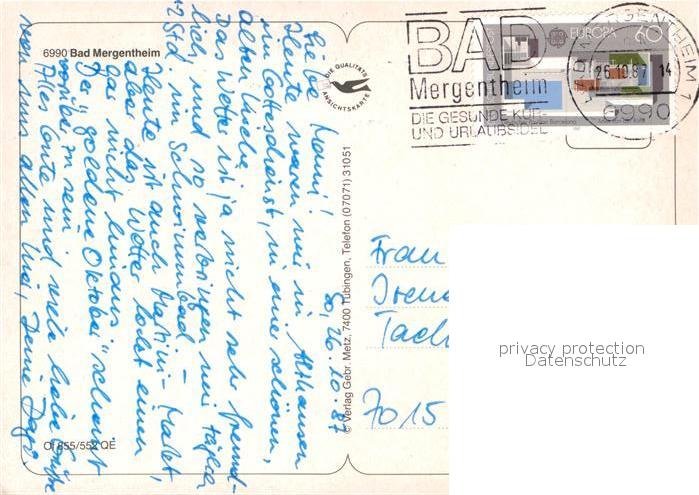 6990 Bad Mergentheim
DIE QUALITÄTS
ANSICHTSKARTE
BAD
Mergentheim
DIE GESUNDE KUR-
UND URLAUBSIDEE
EUROPA
60
BAD MERGENTHEIM 1
26.10.87 14
6990
So, 26.10.87
Liebe Mami!
Heute waren wir in Althausen
im Gottesdienst, in einer schönen,
alten Kirche.
Das Wetter ist ja nicht sehr freund-
lich und so verbringen wir täglich
2 Std. im Schwimmbad –
Heute ist auch Martini-Markt,
aber das Wetter lockt einen
gar nicht hinaus.
Der "goldene Oktober" scheint
vorüber zu sein.
Alles Gute und viele liebe Grüße
von uns allen
© Verlag Gebr. Metz, 7400 Tübingen, Telefon (07071) 31051
Frau
Tach
7015
privacy protection
Datenschutz